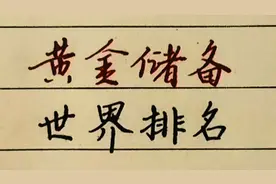 黄金储备
世界排名